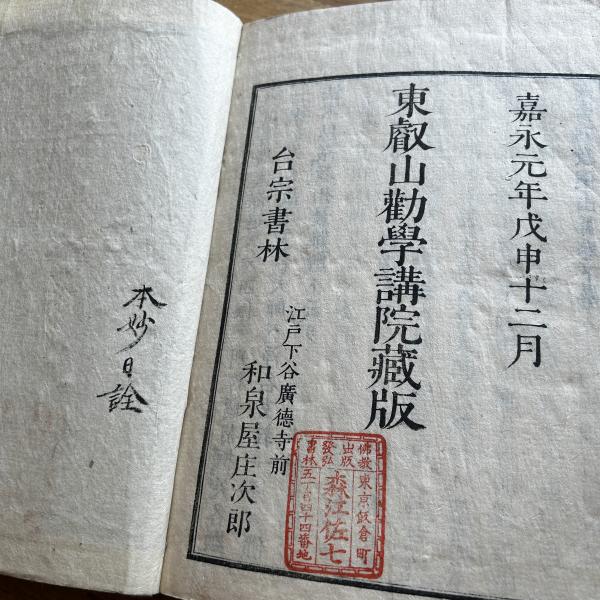 嘉永元年戊申十二月
東叡山勸學講院藏版
台宗書林
江戸下谷廣德寺前
和泉屋庄次郎
佛教出版發弘書林
東京飯倉町五丁目四十四番地
森江佐七
本妙日詮